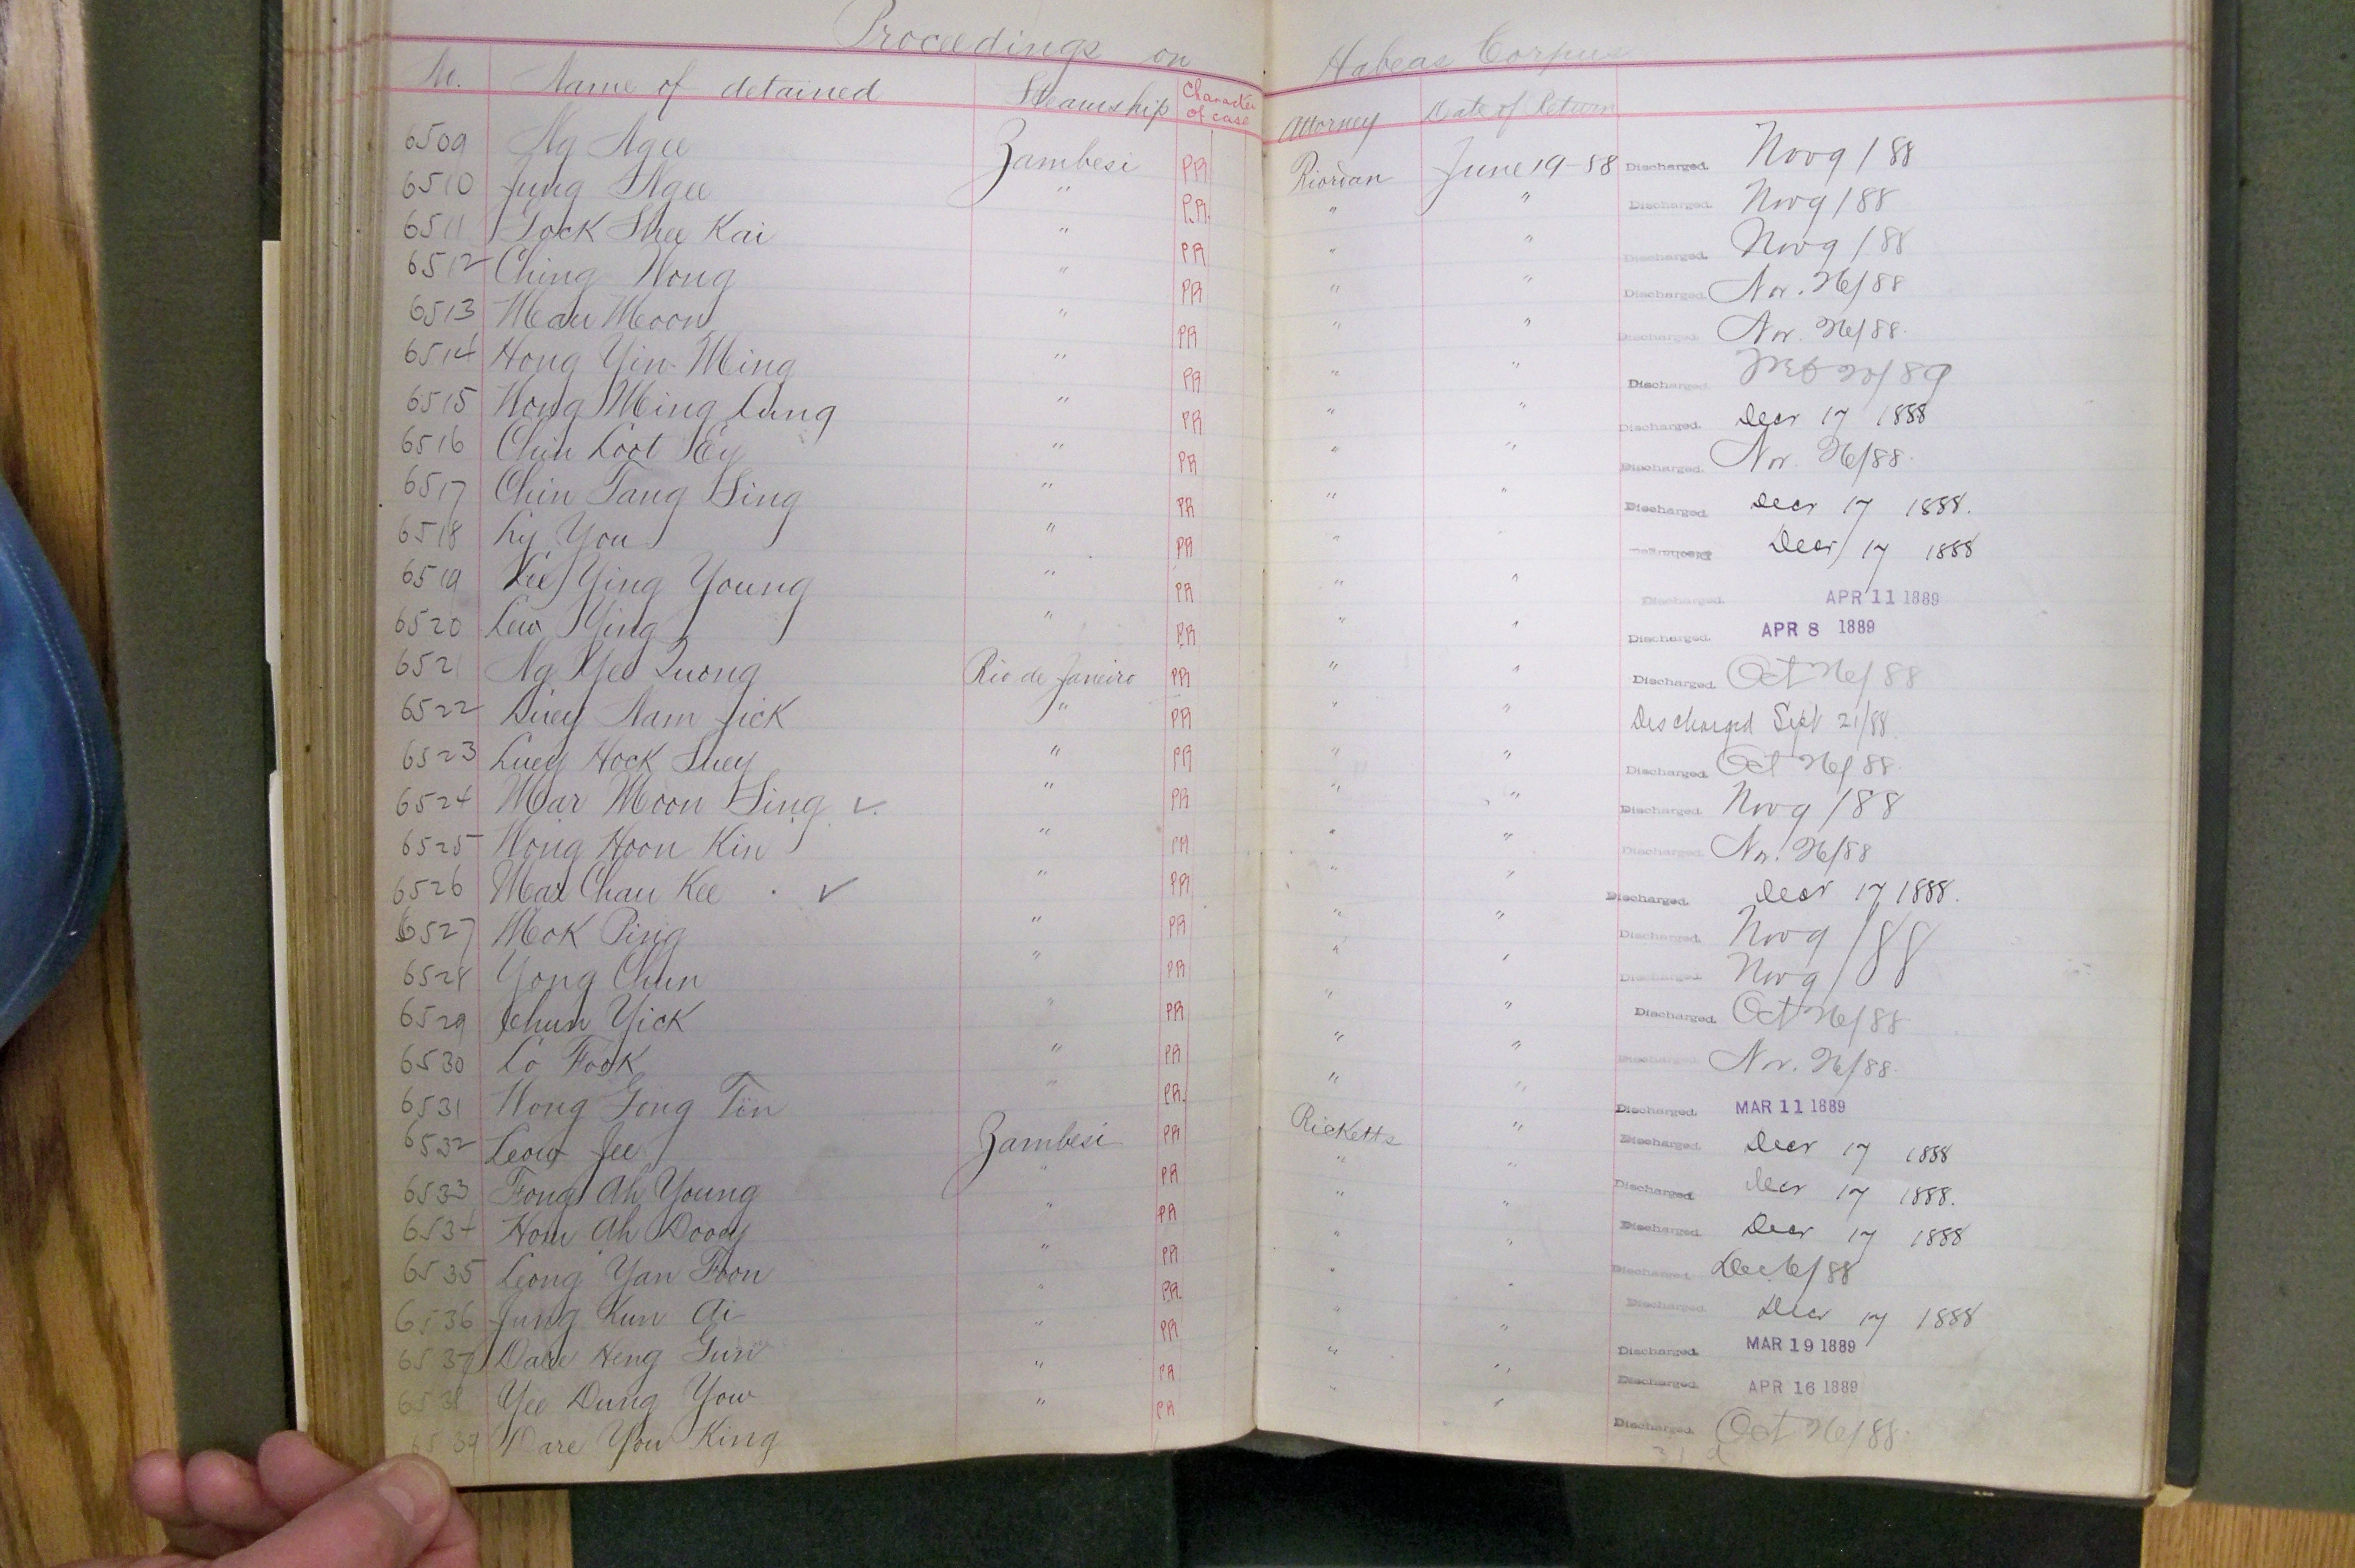 Proceedings on Habeas Corpus
No. Name of detained Steamship Character of case Attorney Date of Return
6509 Ng Agee Zambesi PR Riordan June 19-88 Discharged. Nov 9/88
6510 Jung Ngee " P.R. " " Discharged. Nov 9/88
6511 Gock Shee Kai " PR " " Discharged. Nov 9/88
6512 Ching Hong " PR " " Discharged. Nov. 26/88
6513 Mau Moon " PR " " Discharged. Nov. 26/88.
6514 Hong Yin Ming " PR " " Discharged. 20/89
6515 Hong Ming Lung " PR " " Discharged. Decr 17 1888
6516 Chin Loot Ey " PR " " Discharged. Nov. 26/88.
6517 Chin Tang Sing " PR " " Discharged. Decr 17 1888.
6518 Ly You " PR " " Discharged. Decr 17 1888
6519 Lee Ying Young " PR " " Discharged. APR 11 1889
6520 Lew Ying " PR " " Discharged. APR 8 1889
6521 Ng Yee Quong Rio de Janeiro PR " " Discharged. Oct 26/88
6522 Duey Nam Jick " PR " " Discharged Sept 21/88.
6523 Luey Hock Suey " PR " " Discharged. Oct 26/88.
6524 Mar Moon Sing ✓. " PR " " Discharged. Nov 9/88
6525 Wong Hoon Kin " PR " " Discharged. Nov. 26/88
6526 Mar Chau Kee ✓ " PR " " Discharged. Decr 17 1888.
6527 Mok Ping " PR " " Discharged. Nov 9/88
6528 Yong Chun " PR " " Discharged. Nov 9/88
6529 Chun Yick " PR " " Discharged. Oct 26/88
6530 Lo Fook " PR " " Discharged. Nov. 26/88.
6531 Hong Gong Tin " PR. " " Discharged. MAR 11 1889
6532 Leow Jee Zambesi PR Ricketts " Discharged. Decr 17 1888
6533 Fong Ah Young " PR " " Discharged. Decr 17 1888.
6534 Hom Ah Doody " PR " " Discharged. Decr 17 1888
6535 Leong Yan Foon " PR " " Discharged. Dec. 6/88
6536 Jung Kun Ai " PR. " " Discharged. Decr 17 1888
6537 Dare Heng Gun " PR " " Discharged. MAR 19 1889
6538 Yee Dung Yow " PR " " Discharged. APR 16 1889
6539 Dare You King " PR " " Discharged. Oct 26/88.